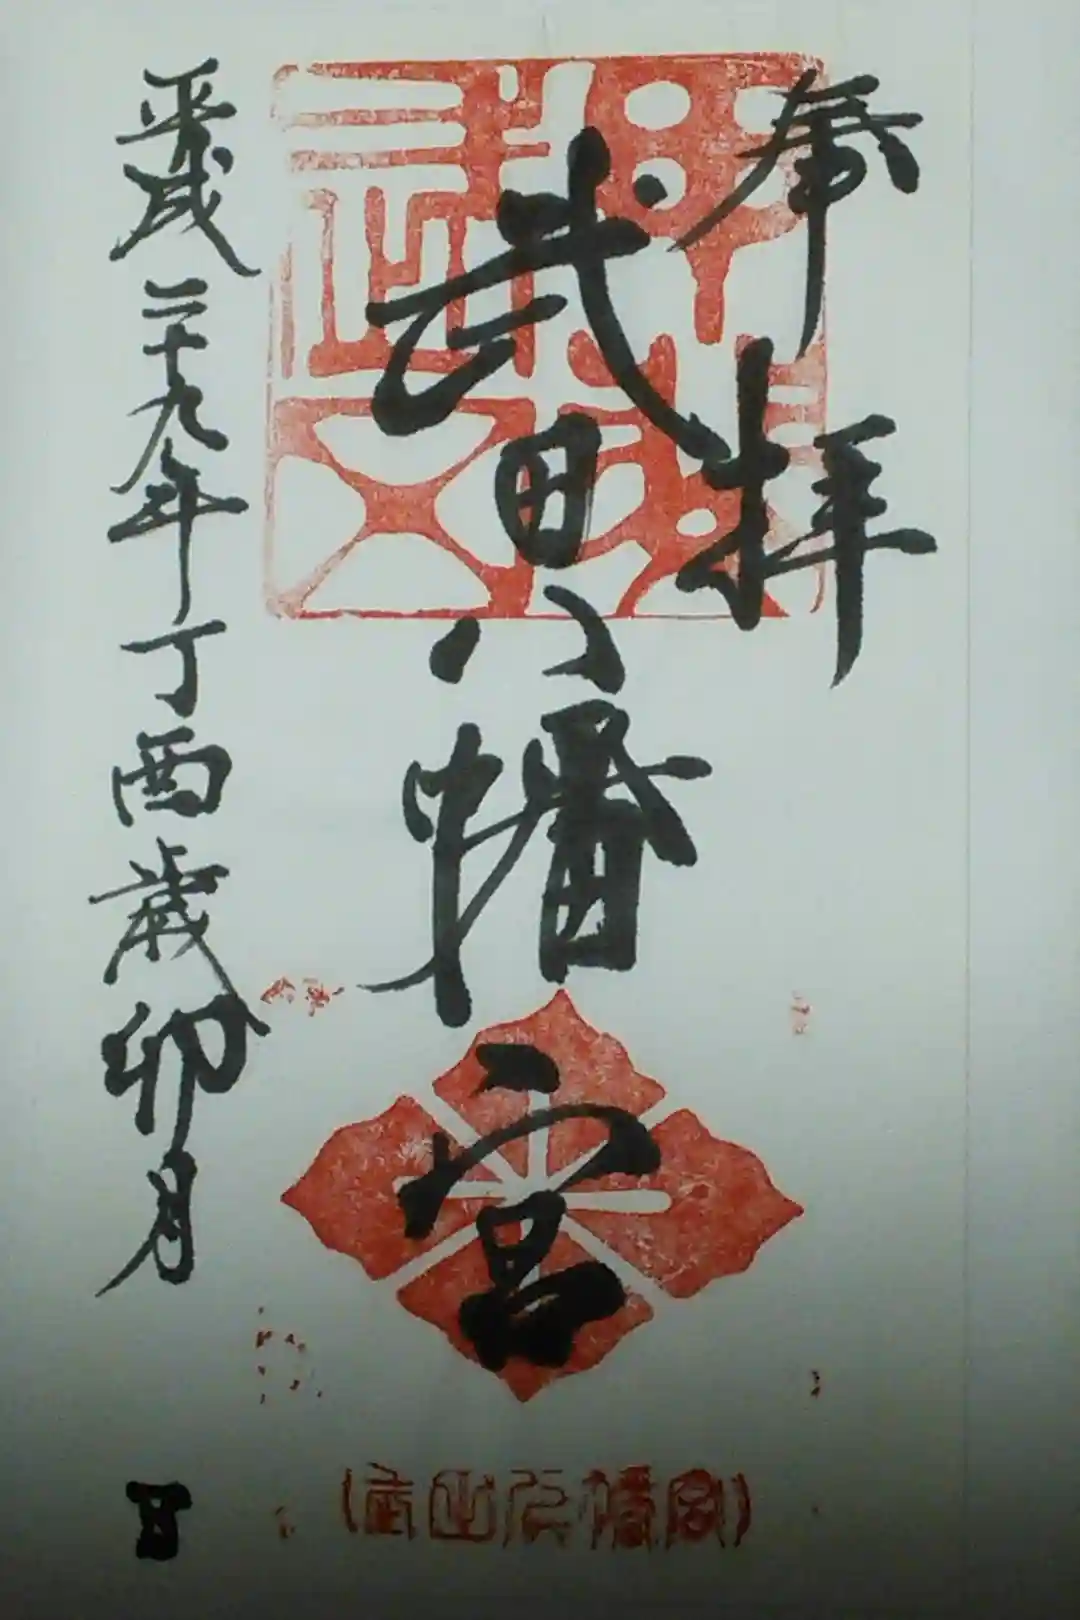 奉拝
武田八幡宮
平成二十九年丁酉歳卯月
日
武田八幡宮